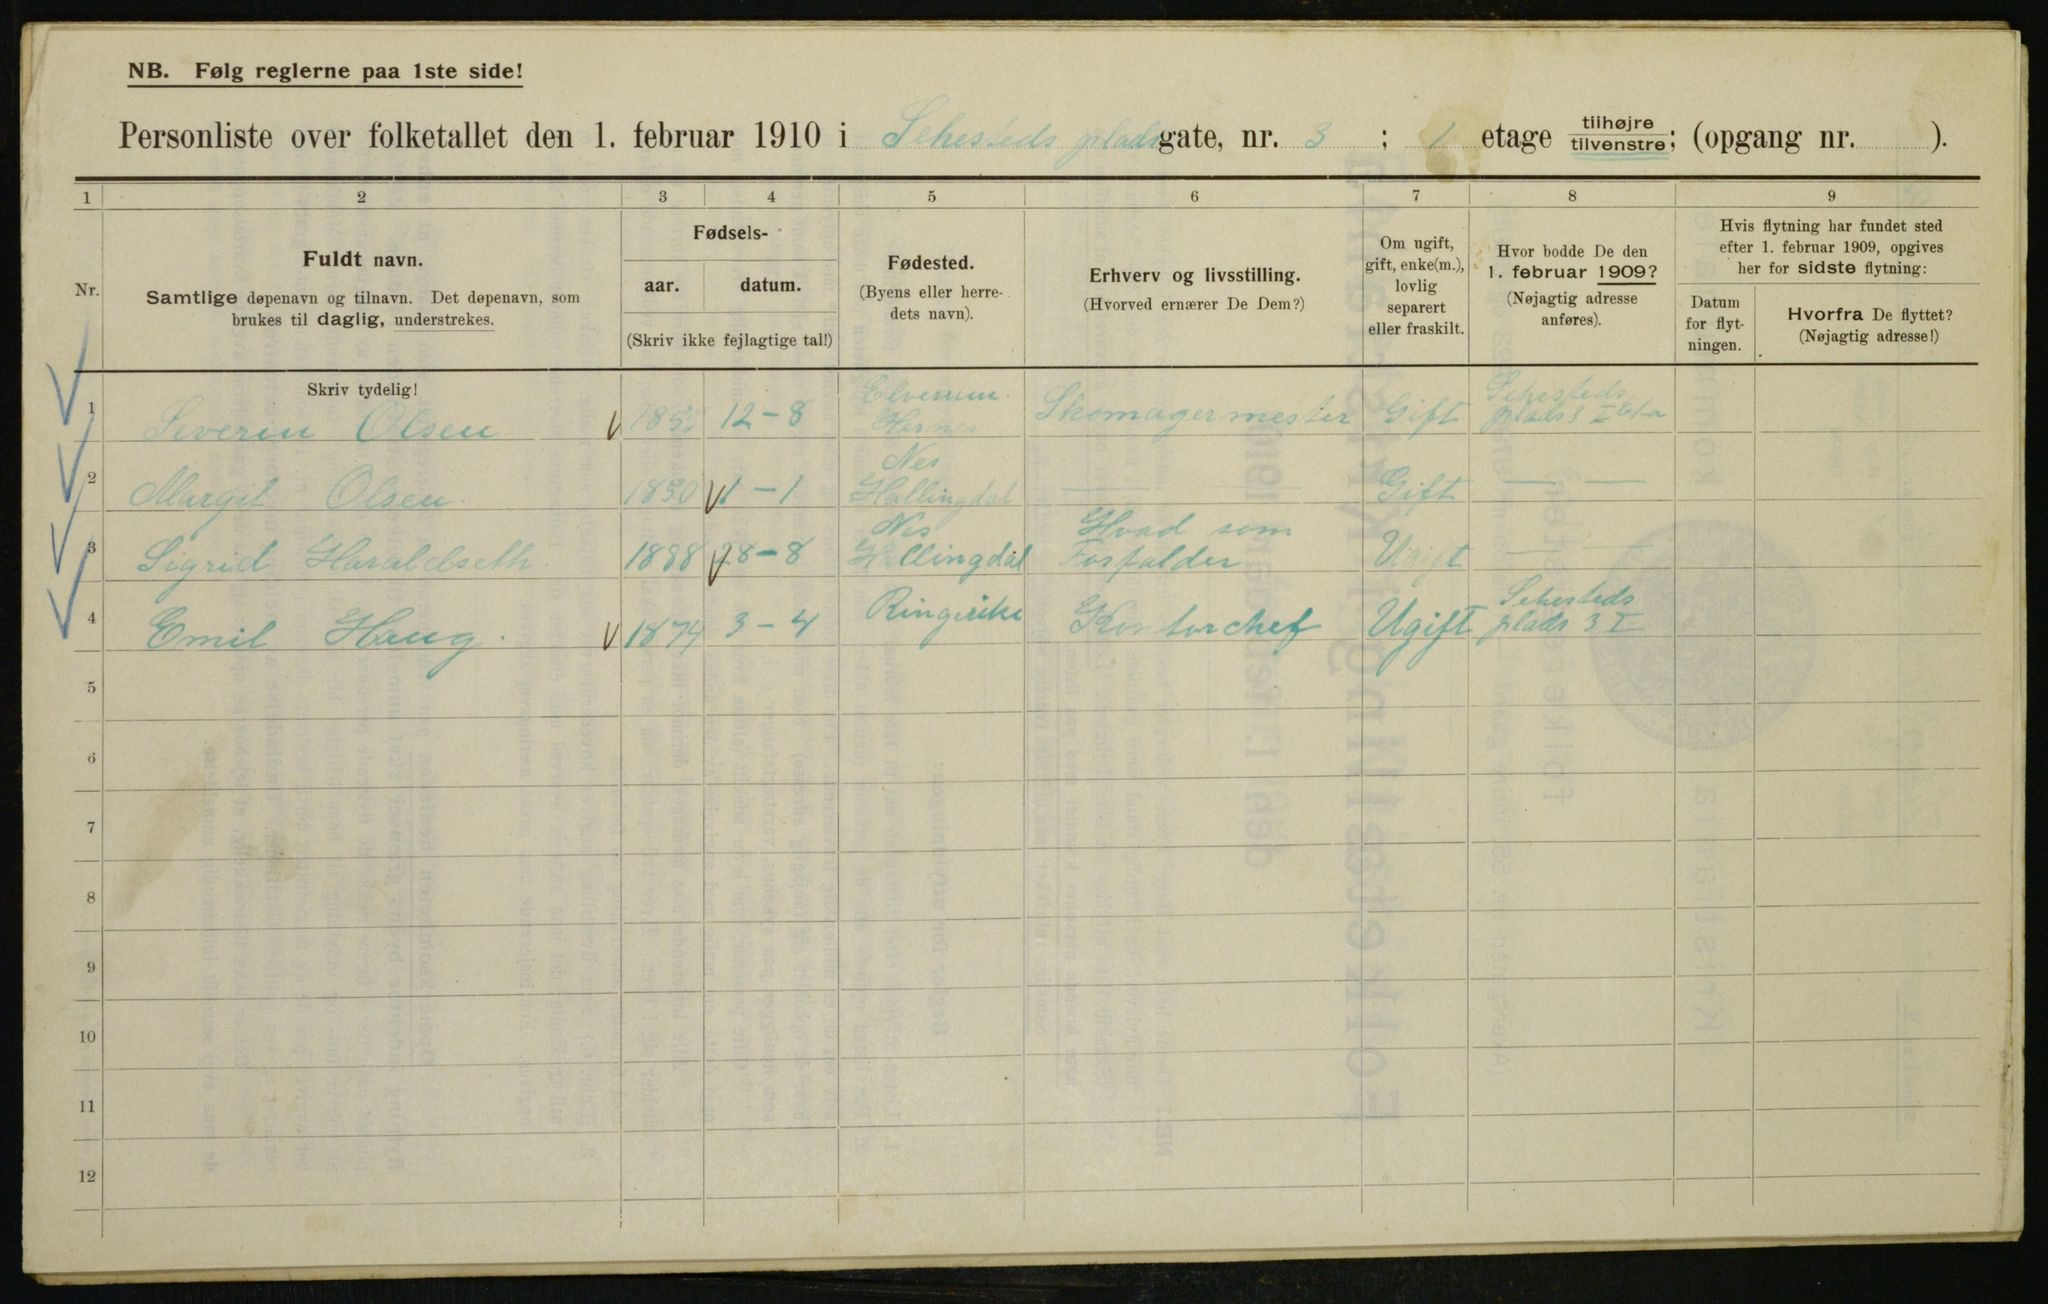 NB. Følg reglerne paa 1ste side!
Personliste over folketallet den 1. februar 1910 i Sehesteds plads gate, nr. 3 ; 1 etage tilhøjre tilvenstre; (opgang nr. ).
1 2 3 4 5 6 7 8 9
Nr.
Fuldt navn.
Samtlige døpenavn og tilnavn. Det døpenavn, som
brukes til daglig, understrekes.
Fødsels-
aar. datum.
(Skriv ikke fejlagtige tal!)
Fødested.
(Byens eller herre-
dets navn).
Erhverv og livsstilling.
(Hvorved ernærer De Dem?)
Om ugift,
gift, enke(m.),
lovlig
separert
eller fraskilt.
Hvor bodde De den
1. februar 1909?
(Nøjagtig adresse
anføres).
Hvis flytning har fundet sted
efter 1. februar 1909, opgives
her for sidste flytning:
Datum
for flyt-
ningen.
Hvorfra De flyttet?
(Nøjagtig adresse!)
Skriv tydelig!
1 Severin Olsen 12-8 Elverum Hernes Skomagermester Gift Sehesteds plads 3 I
2 Margit Olsen. 1850 1-1 Nes Hallingdal — — Gift — —
3 Sigrid Haraldseth. 1888 28-8 Nes Hallingdal Hvad som Forfalder Ugift — —
4 Emil Haug. 1874 3-4 Ringerike Kontorchef Ugift Sehesteds plads 3 I
5
6
7
8
9
10
11
12